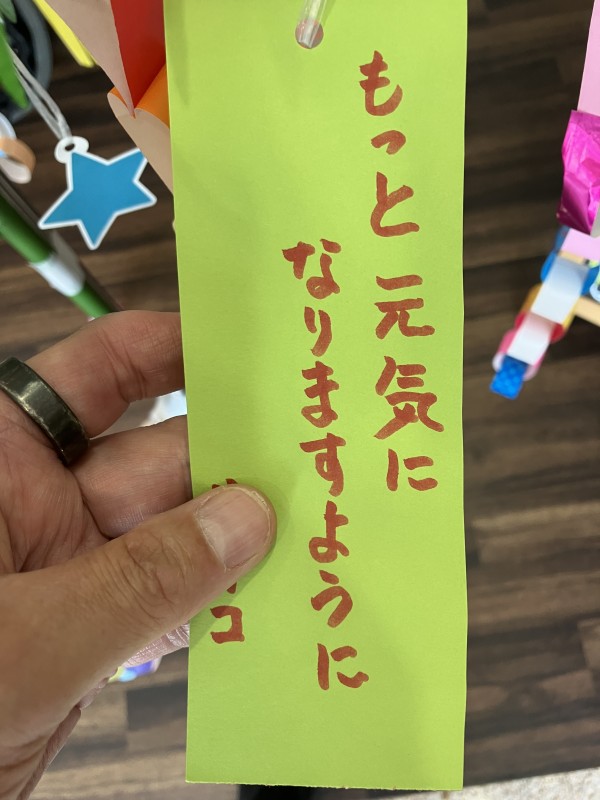 もっと元気に
なりますように
コ